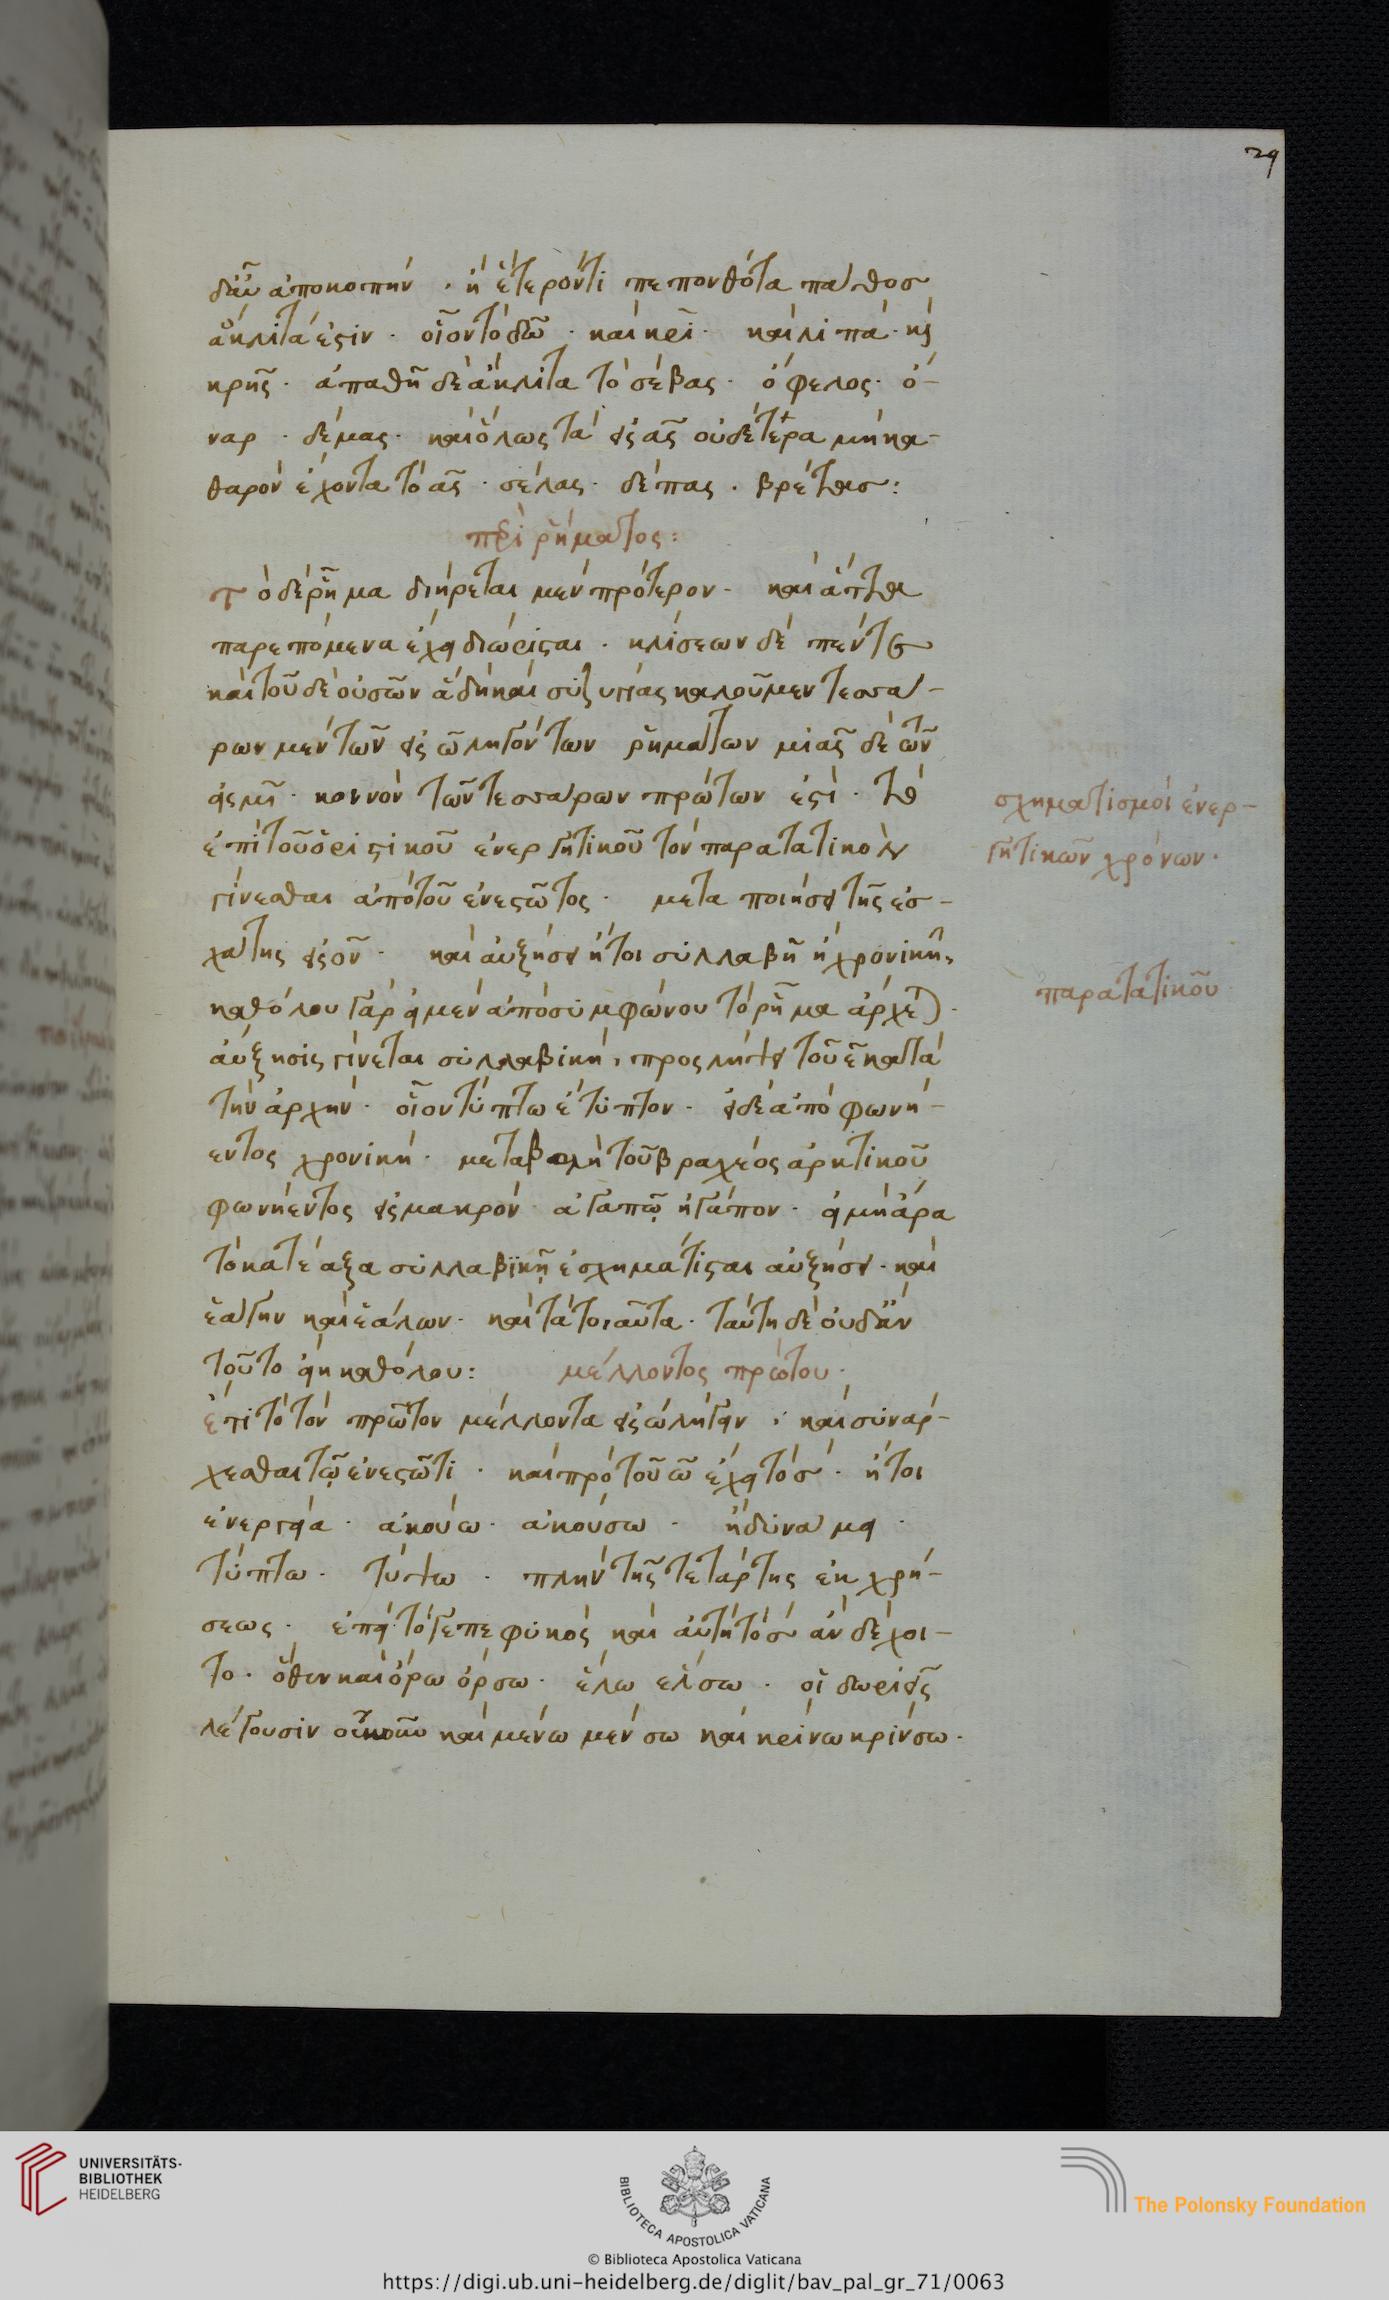 29
δ' αὖ ἀποκοπὴν, ἢ ἕτερόν τι πεπονθότα πάθος
ἄκλιτά ἐστιν· οἷον τὸ δῶ· καὶ κρῖ· καὶ λίπα· καὶ
κρῆς· ἀπαθῆ δὲ ἄκλιτα τὸ σέβας· ὄφελος· ὄ-
ναρ· δέμας· καὶ ὅλως τὰ εἰς ας οὐδέτερα μὴ κα-
θαρὸν ἔχοντα τὸ ας· σέλας· δέπας· βρέτας:
περὶ ῥήματος:
Τὸ δὲ ῥῆμα διήρεται μὲν πρότερον· καὶ ἅττα
παρεπόμενα ἔχει διώρισται· κλίσεων δὲ πέντε
καὶ τοῦδε οὐσῶν ἃ δὴ καὶ συζυγίας καλοῦμεν τεσσά-
ρων μὲν τῶν εἰς ω ληγόντων ῥημάτων μιᾶς δὲ τῶν
εἰς μι· κοινὸν τῶν τεσσάρων πρώτων ἐστὶ· τὸ
ἐπὶ τοῦ ὁριστικοῦ ἐνεργητικοῦ τὸν παρατατικὸν
γίνεσθαι ἀπὸ τοῦ ἐνεστῶτος· μεταποιήσει τῆς ἐσ-
χάτης εἰς ον· καὶ αὐξήσει ἤτοι συλλαβῆ ἢ χρονικῆ,
καθόλου γὰρ εἰ μὲν ἀπὸ συμφώνου τὸ ῥῆμα ἄρχεται·
αὔξησις γίνεται συλλαβική, προσλήψει τοῦ ε κατὰ
τὴν ἀρχὴν· οἷον τύπτω ἔτυπτον· εἰ δὲ ἀπὸ φωνή-
εντος χρονική· μεταβολὴ τοῦ βραχέος ἀρκτικοῦ
φωνήεντος εἰς μακρὸν· ἀγαπῶ ἠγάπον· εἰ μὴ ἄρα
τὸ κατέαξα συλλαβικῇ ἐσχημάτισται αὐξήσει· καὶ
ἐάγην καὶ ἑάλων· καὶ τὰ τοιαῦτα· ταύτη δὲ οὐδ' ἂν
τοῦτο εἴη καθόλου: μέλλοντος πρώτου·
Ἔτι τὸ τὸν πρῶτον μέλλοντα εἰς ω λήγειν, καὶ συνάρ-
χεσθαι τῷ ἐνεστῶτι· καὶ πρὸ τοῦ ω ἔχει τὸ σ· ἤτοι
ἐνεργεία· ἀκούω· ἀκούσω· ἢ δυνάμει·
τύπτω· τύψω· πλὴν τῆς τετάρτης ἐκ χρή-
σεως· ἐπεὶ τό γε πεφυκὸς καὶ αὐτὴ τὸ σ ἂν δέχοι-
το· ὅθεν καὶ ὄρω ὄρσω· ἔλω ἔλσω· οἱ δωριεῖς
λέγουσιν καὶ μένω μένσω καὶ κρίνω κρίνσω·
σχηματισμοὶ ἐνερ-
γητικῶν χρόνων·
παρατατικοῦ
UNIVERSITÄTS-
BIBLIOTHEK
HEIDELBERG
BIBLIOTECA APOSTOLICA VATICANA
The Polonsky Foundation
© Biblioteca Apostolica Vaticana
https://digi.ub.uni-heidelberg.de/diglit/bav_pal_gr_71/0063